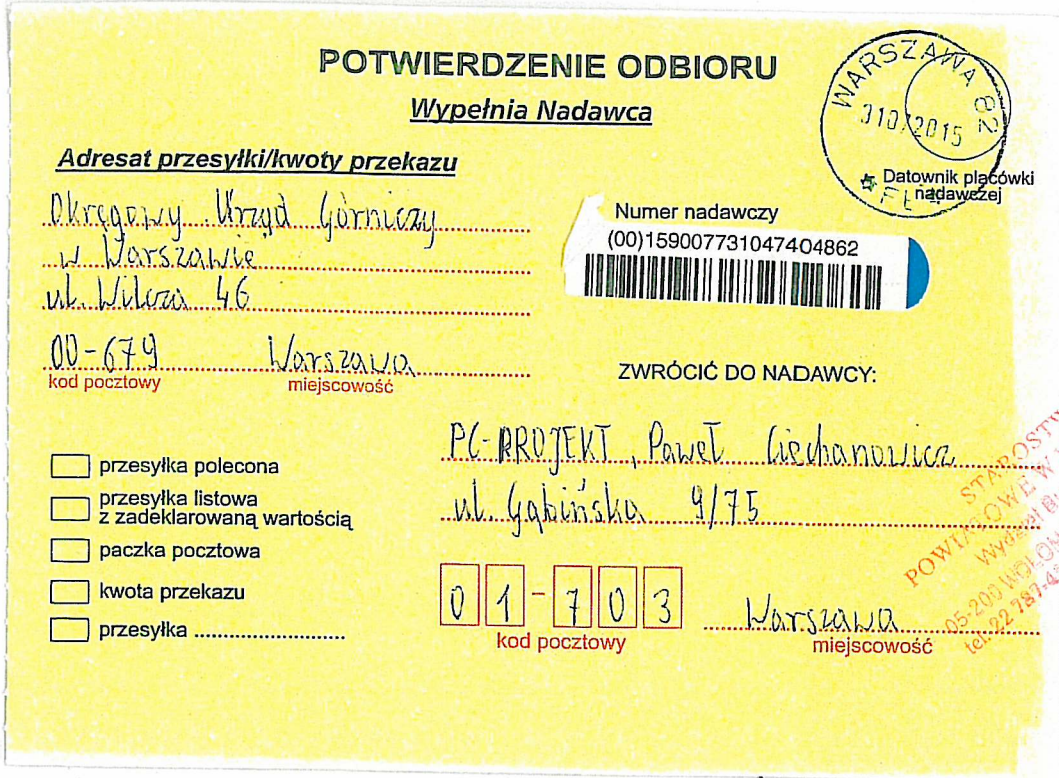 POTWIERDZENIE ODBIORU
Wypełnia Nadawca
WARSZAWA 82
2015
Datownik placówki
nadawczej
Adresat przesyłki/kwoty przekazu
Okręgowy Urząd Górniczy
w Warszawie
ul. Wilcza 46
00-679 Warszawa
kod pocztowy miejscowość
Numer nadawczy
(00)159007731047404862
ZWRÓCIĆ DO NADAWCY:
PC-PROJEKT, Paweł Ciechanowicz
ul. Gąbińska 9/75
01-703 Warszawa
kod pocztowy miejscowość
przesyłka polecona
przesyłka listowa
z zadeklarowaną wartością
paczka pocztowa
kwota przekazu
przesyłka ..........................
POWIATOWE W
Wydział
05-200
tel. 22 787-4